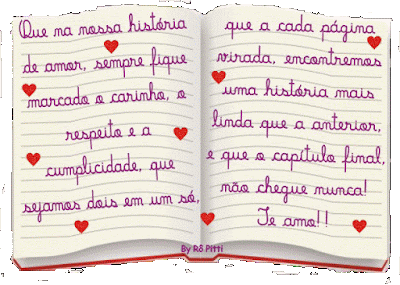 Que na nossa história
de amor, sempre fique
marcado o carinho, o
respeito e a
cumplicidade, que
sejamos dois em um só,
que a cada página
virada, encontremos
uma história mais
linda que a anterior,
e que o capítulo final,
não chegue nunca!
Te amo!!
By Rô Pitti